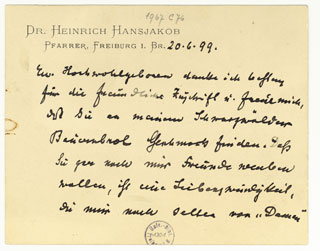 1967 C 76
DR. HEINRICH HANSJAKOB
PFARRER, FREIBURG I. BR. 20.6.99.
Ew. Hochwohlgeboren danke ich bestens
für die freundliche Zuschrift u. freue mich,
daß Sie an meinem Schwarzwälder
Bauernbrot Geschmack finden. Daß
Sie gar noch mir Freunde werben
wollen, ist eine Liebenswürdigkeit,
die mir noch selten von „Damen"